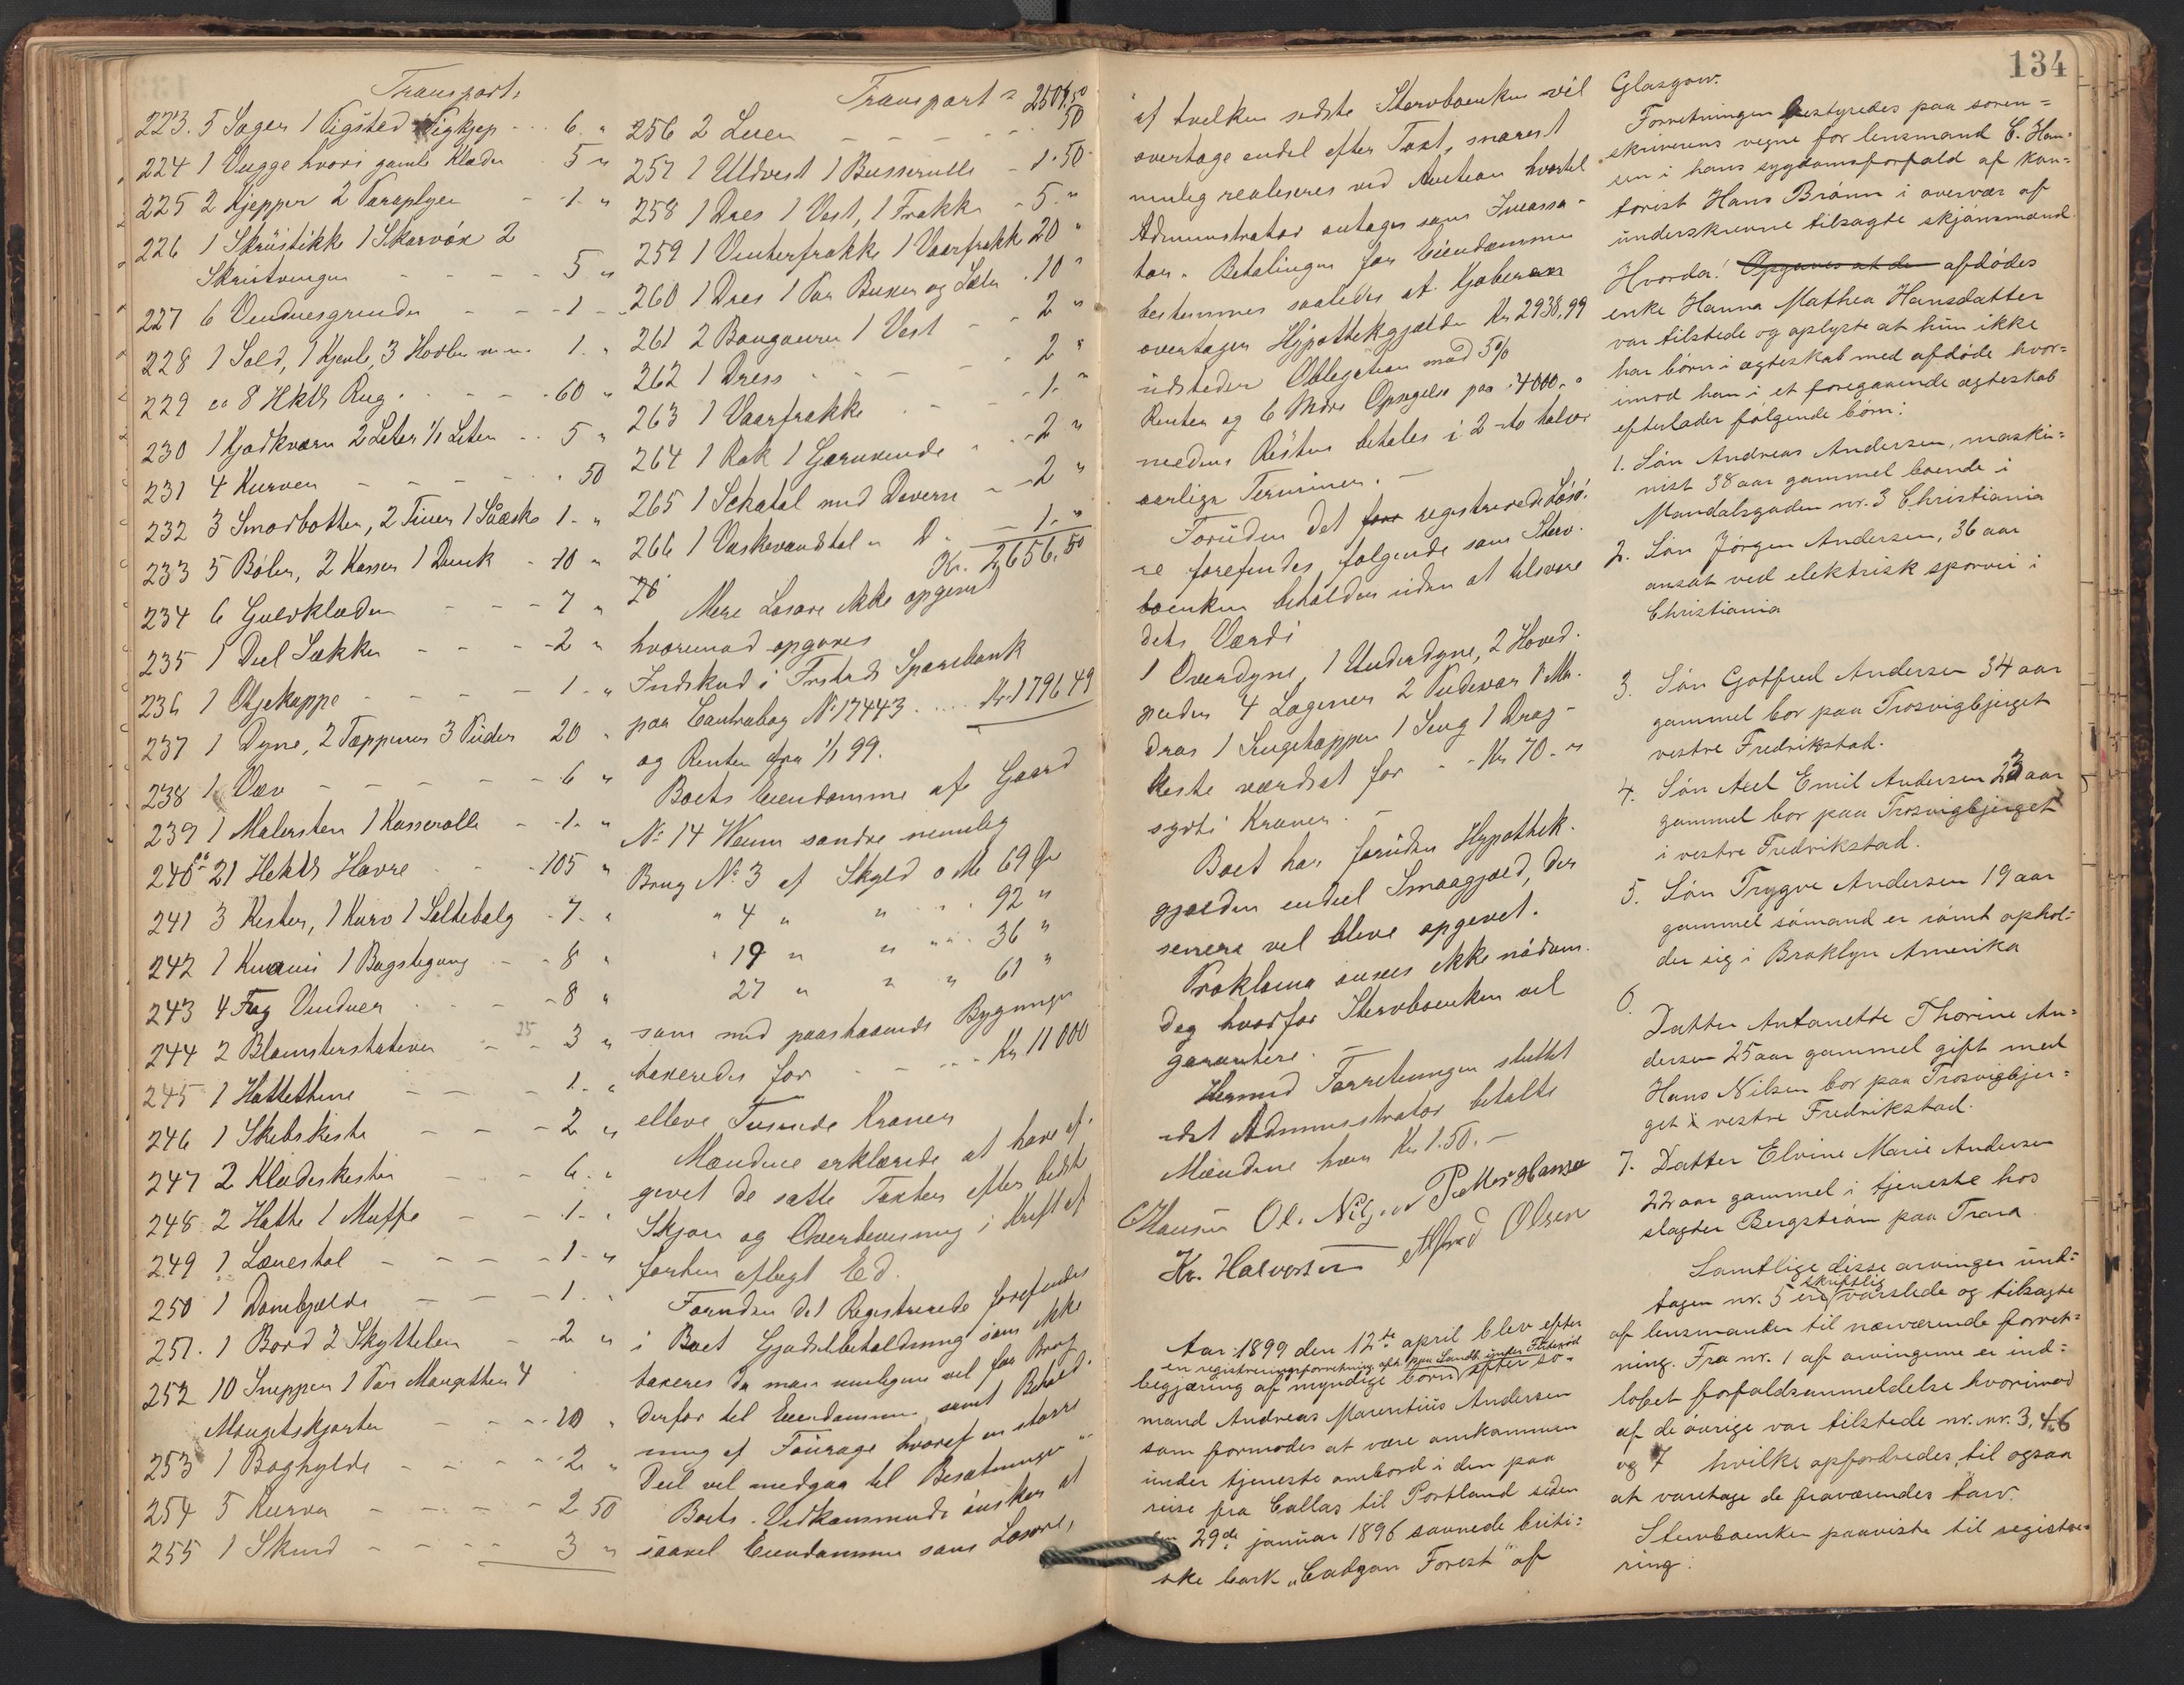 Transport:
223. 5 Sager 1 Vigsted Vigkjep - - 6. "
224 1 Vugge hvori gamle Klæder - 5 "
225 2 Kjepper 2 Paraplyer - 1. "
226 1 Skrustikke 1 2
Skruetvinger - - - - 5 "
227 6 Vinduesgrinder - - - 1 -
228 1 Sold, 1 3 Hovler m.m. 1. "
229 ca 8 Hktlr Rug. - - - 60 "
230 1 Kjødkværn 2 Leter 1/1 Leter - - 5 "
231 4 Kurver - - - - 50
232 3 Smørbøtter, 2 Tiner 1 1. "
233 5 Bøler, 2 Kasser 1 Dunk - 10 "
234 6 Gulvklæder - - - 7 "
235 1 Deel Sækker - - - 2 "
236 1 - - - - 1. "
237 1 Dyne, 2 Tæpper 3 Puder 20 "
238 1 Væv - - - - 6 "
239 1 Malersten 1 Kasserolle - 1. "
240 ca 21 Hektlr Havre - - 105 "
241 3 Kister, 1 Kurv 1 - 7. "
242 1 1 - - 8 "
243 4 Fag Vinduer - - - 8 "
244 2 Blomsterstativer 25 - - 3 "
245 1 - - - 1. "
246 1 Skibskiste - - - 2 "
247 2 Klædeskister - - 6. "
248 2 Hatte 1 Muffe - - 1. "
249 1 Lænestol - - - - 1. "
250 1 - - - 1. "
251. 1 Bord 2 - 2 "
252 10 1 Par Mangetter 4
Mangetskjorter - - - 10 "
253 1 Boghylde - - - 2 "
254 5 Kurve - - - - 2 50
255 1 - - - - 3 "
Transport = 2504.50
256 2 Leer - - - - - 50
257 1 Uldvest 1 Busserulle - 1.50
258 1 Dres 1 Vest, 1 Frakke - 5. "
259 1 Vinterfrakke 1 Vaarfrakke 20 "
260 1 Dres 1 Par Buxer og - 10 "
261 2 1 Vest - - 2 "
262 1 Dress - - - - 2 "
263 1 Vaarfrakke - - - 1. "
264 1 Rok 1 Garnvende - - 2 "
265 1 Schatol med - 2 "
266 1 Vaskevandstol " D - 1. "
Kr. 2656.50
Mere Løsøre ikke opgivet
hvorimod opgaves
Indskud i Frstads Sparebank
paa Contrabog No 17443 . . . . Kr. 1796 49
og Renter fra 1/1 99.
Boets Eiendomme af Gaard
No 14 søndre nemlig
Brug No 3 af Skyld o Mk 69 Øre
" 4 " " " 92 "
" 19 " " " 36 "
" 27 " " " 61 "
som med paastaaende Bygninger
taxeredes for - - - - Kr 11000
elleve Tusinde Kroner
Mændene erklærede at have af-
givet de satte Taxter efter bedste
Skjøn og Overbevisning i Kraft af
forhen aflagt Ed.
Foruden det Registrerede forefindes
i Boet Gjødselbeholdning som ikke
taxeres da man muligens vil faa Brug
derfor til Eiendommen samt Behold-
ning af Fourage hvoraf en større
Deel vil medgaa til Besætninge "
Boets Vedkommende ønsker at
saavel Eiendommen som Løsøre,
af hvilken sidste Stervboenken vil
overtage endel efter Taxt, snarest
mulig realiseres ved Auction hvortil
Administrator antages som Incassa-
tor. Betalingen for Eiendommen
bestemmes saaledes at Kjøberen
overtager Hypothekgjælden Kr 2938,99
udsteder Obligation mod 5%
Renter og 6 Mdrs Opsigelse paa 4000. "
medens Resten betales i 2 -to halv-
aarlige Terminer. -
Foruden det for registrerede Løsø-
re forefindes følgende som Sterv-
boenken beholder uden at tilsvare
dets Værdi
1 Overdyne, 1 Underdyne, 2 Hoved-
puder 4 Lagener 2 Pudevar 1 Ma-
dras 1 Sengetæppe 1 Seng 1 Drag-
kiste værdsat for - - Kr 70. "
sytti Kroner. -
Boet har foruden Hypothek-
gjælden endeel Smaagjæld, der
senere vil blive opgivet.
Proklama ansees ikke nødven-
dig hvorfor Stervboenken vil
garantere. -
Hermed Forretningen sluttet
idet Administrator betalte
Mændene hver Kr 1.50. -
C Hansen Ol. Nilsen Petter Hansen
Kr. Halvorsen Alfred Olsen
Aar 1899 den 12te april blev efter
en registreringsforretning afh. paa Sandb. under Fuleviol
begjæring af myndige børn efter sø-
mand Andreas Marentius Andersen
som formodes at være omkommen
under tjeneste ombord i den paa
reise fra Callao til Portland siden
den 29de januar 1896 savnede briti=
ske bark "Cadzow Forest" af
134
Glasgow.
Forretningen bestyredes paa soren=
skriverens vegne for lensmand C. Han=
sen i hans sygdomsforfald af kon=
torist Hans Brånn i overvær af
underskrevne tilsagte skjønsmænd.
Hvorda! Opgaves at de afdødes
enke Hanna Mathea Hansdatter
var tilstede og oplyste at hun ikke
har børn i ægteskab med afdøde hvor=
imod han i et foregaaende ægteskab
efterlader følgende børn:
1. Søn Andreas Andersen, maski=
nist 38 aar gammel boende i
Mandalsgaden nr. 3 Christiania
2. Søn Jørgen Andersen, 36 aar
ansat ved elektrisk sporvei i
Christiania
3. Søn Gotfred Andersen 34 aar
gammel bor paa Trosvigbjerget
vestre Fredrikstad.
4. Søn Axel Emil Andersen 23 aar
gammel bor paa Trosvigbjerget
i vestre Fredrikstad.
5. Søn Trygve Andersen 19 aar
gammel sømand er rømt ophol=
der sig i Broklyn Amerika
6.
Datter Antonette Thorine An=
dersen 25 aar gammel gift med
Hans Nilsen bor paa Trosvigbjer=
get i vestre Fredrikstad.
7. Datter Elvine Marie Andersen
22 aar gammel i tjeneste hos
slagter Bergstrøm paa Trara
Samtlige disse arvinger und=
skriftlig
tagen nr. 5 er varslede og tilsagte
af lensmanden til nærværende forret=
ning. Fra nr. 1 af arvingerne er ind=
løbet forfaldsanmeldelse hvorimod
af de øvrige var tilstede nr. nr. 3, 4, 6
og 7 hvilke opfordredes til ogsaa
at varetage de fraværendes tarv.
Stervboenken paaviste til registre=
ring: